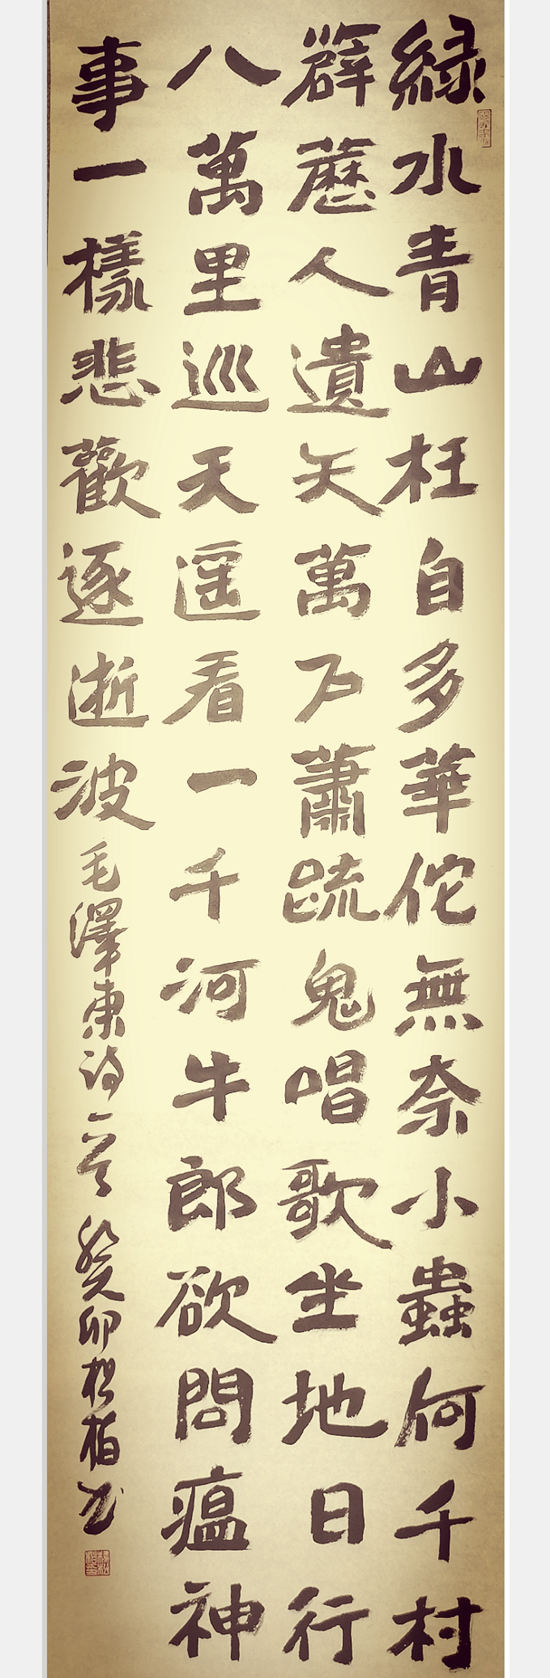 緑水青山枉自多華佗無奈小蟲何千村
薜藶人遺矢萬户蕭疏鬼唱歌坐地日行
八萬里巡天遥看一千河牛郎欲問瘟神
事一樣悲歡逐逝波
毛澤東诗一首 癸卯松柏书